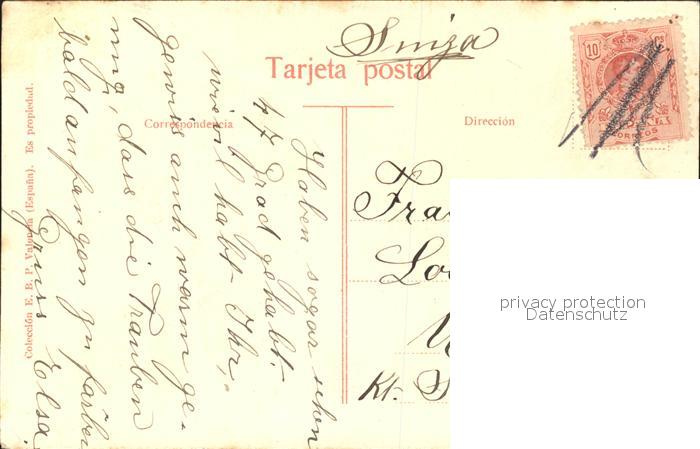 Suiza
Tarjeta postal
10 Cs
CORREOS
Correspondencia
Dirección
Colección E. B. P. Valencia (España). Es propiedad.
Haben sogar schon
47 Grad gehabt.
wieviel habt Ihr,
gewiss auch warm ge-
nug, dass die Trauben
bald anfangen zu färben
Gruss Elsa
Fra
Lo
Kt. S
privacy protection
Datenschutz